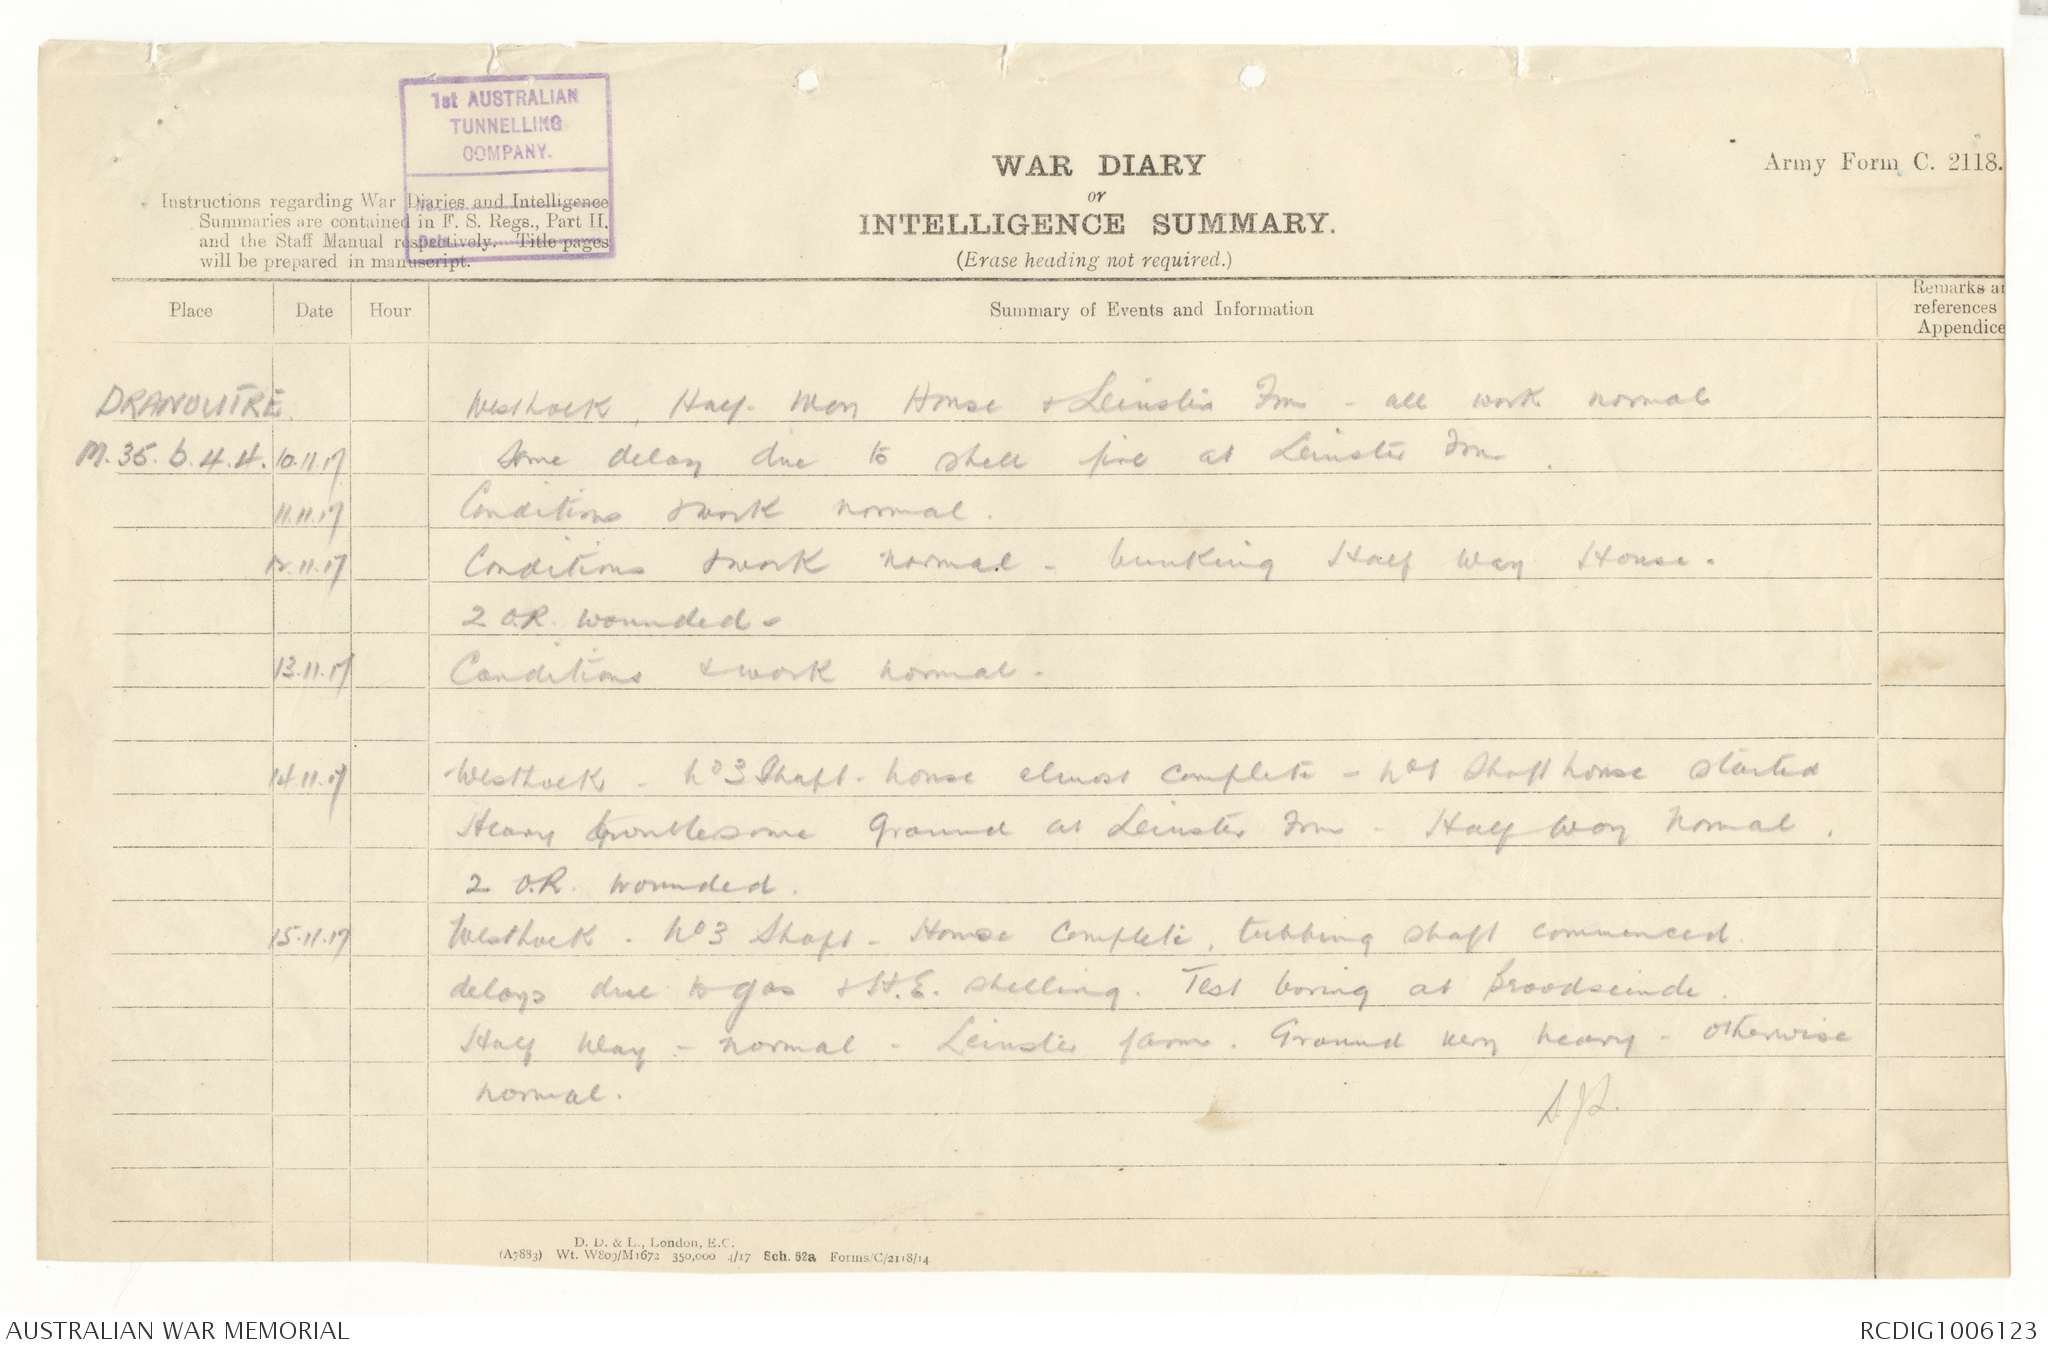 1st AUSTRALIAN
TUNNELLING
COMPANY.
WAR DIARY
or
INTELLIGENCE SUMMARY.
(Erase heading not required.)
Army Form C. 2118.
Instructions regarding War Diaries and Intelligence
Summaries are contained in F. S. Regs., Part II.
and the Staff Manual respectively. Title pages
will be prepared in manuscript.
Place Date Hour Summary of Events and Information Remarks
references
Appendice
DRANOUTRE. Westhoek, Half-Way House & Leinster Frm - all work normal
M.35.b.4.4. 10.11.17 Some delay due to shell fire at Leinster Frm.
11.11.17 Conditions & work normal.
12.11.17 Conditions & work normal - bunking Half Way House.
2 O.R. wounded.
13.11.17 Conditions & work normal.
14.11.17 Westhoek - No 3 Shaft-house almost complete - No 1 Shaft house started
Heavy troublesome ground at Leinster Frm - Half Way normal.
2 O.R. wounded.
15.11.17 Westhoek - No 3 Shaft-House complete, tubbing shaft commenced.
delays due to gas & H.E. shelling. Test boring at Broodseinde.
Half Way - normal - Leinster farm. Ground very heavy - otherwise
normal.
D. D. & L., London, E.C.
(A7883) Wt. W809/M1672 350,000 4/17 Sch. 52a Forms/C/2118/14
AUSTRALIAN WAR MEMORIAL RCDIG1006123